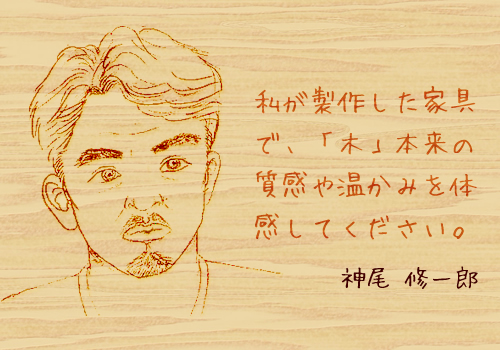 私が製作した家具
で、「木」本来の
質感や温かみを体
感してください。
神尾 修一郎